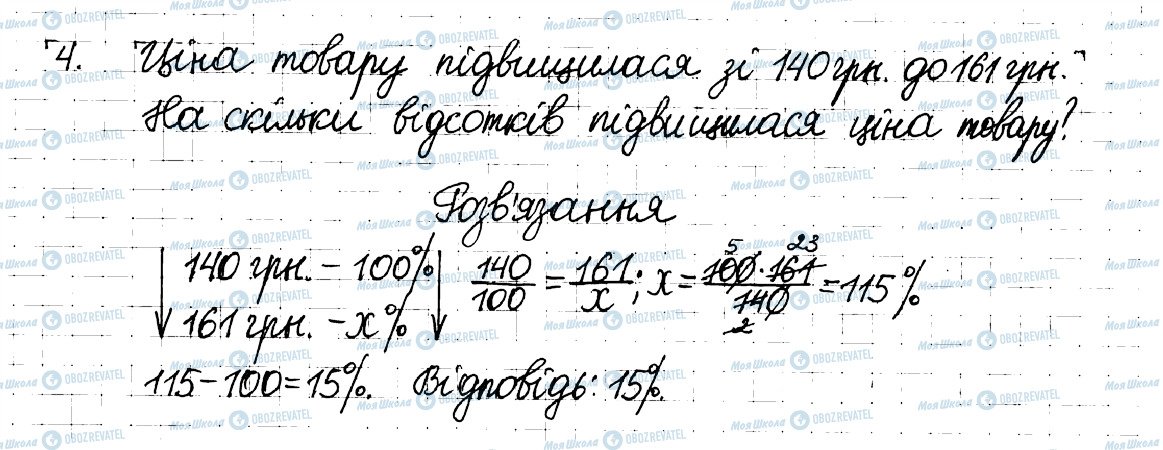 4. Ціна товару підвищилася зі 140 грн. до 161 грн.
На скільки відсотків підвищилася ціна товару?
Розв'язання
140 грн. – 100% 140/100 = 161/x; x = 100·161/140 = 115%
161 грн. – x%
5 23
2
115 – 100 = 15%. Відповідь: 15%.
Моя Школа OBOZREVATEL